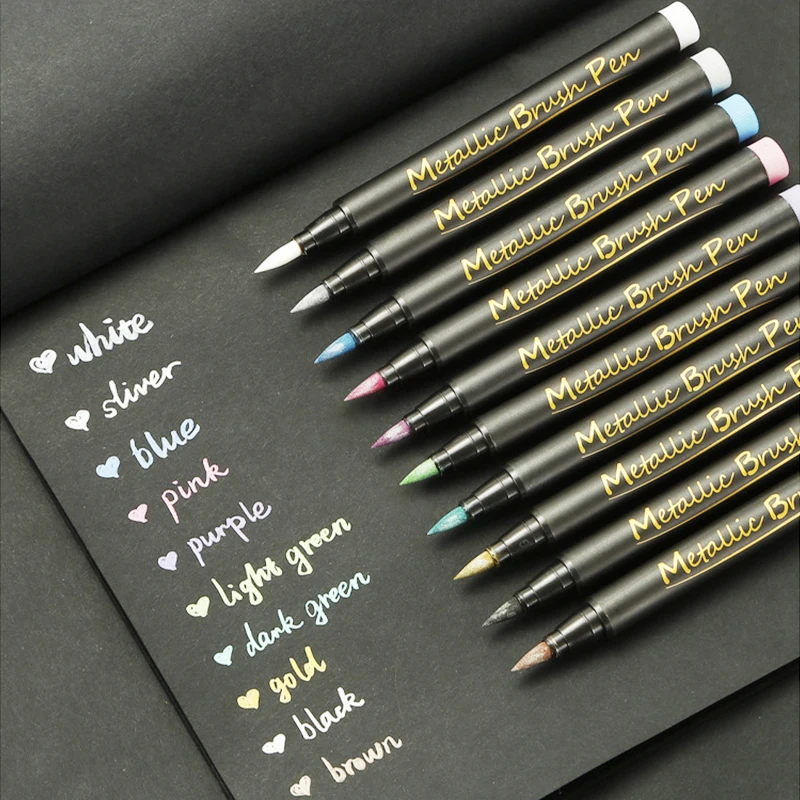 Metallic Brush Pen
Metallic Brush Pen
Metallic Brush Pen
Metallic Brush Pen
Metallic Brush Pen
Metallic Brush Pen
Metallic Brush Pen
Metallic Brush Pe
Metallic Brush
Metallic Bru
white
sliver
blue
pink
purple
light green
dark green
gold
black
brown